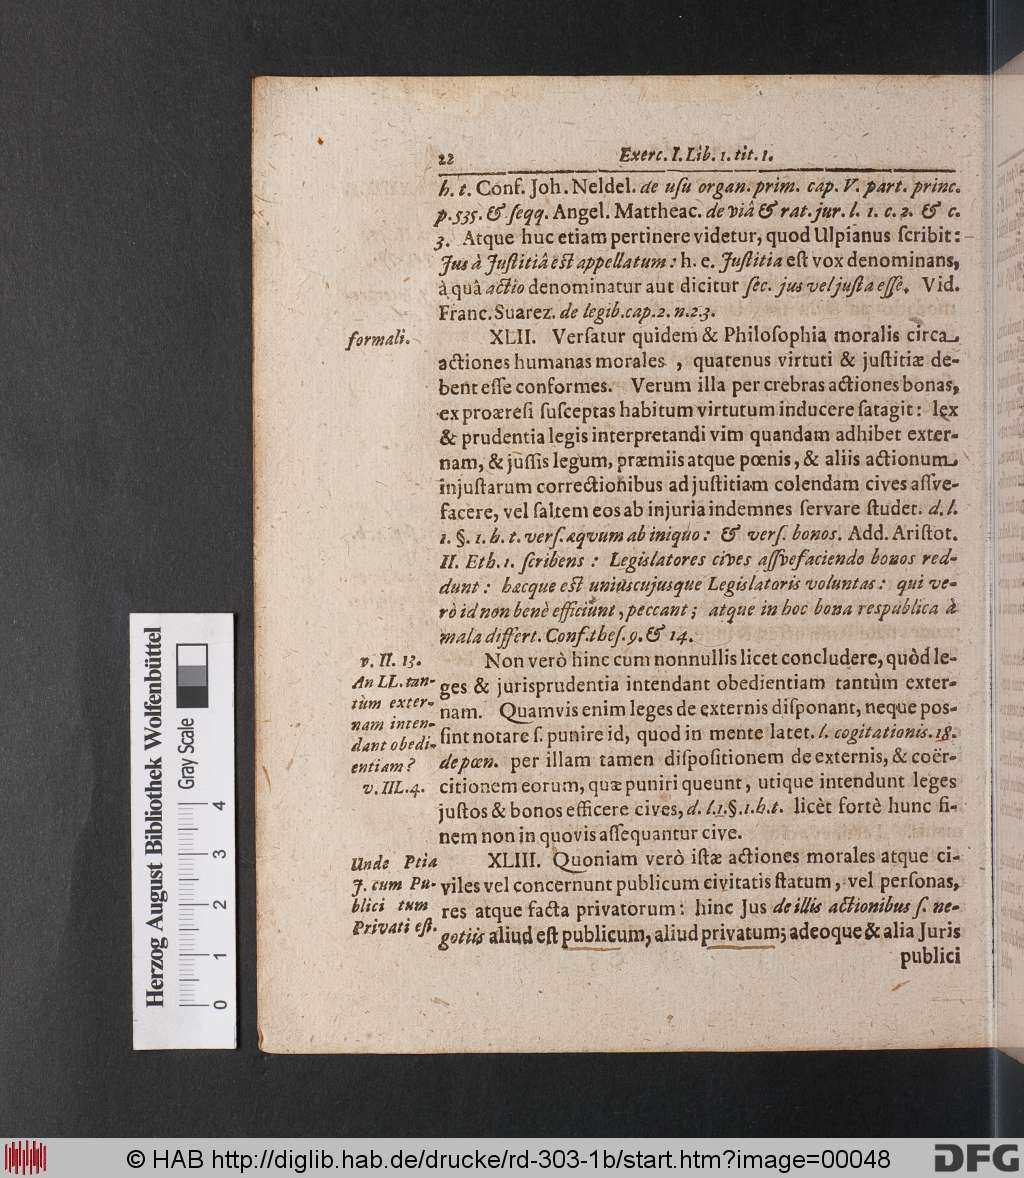 22
Exerc. I. Lib. 1. tit. 1.
h. t. Conf. Joh. Neldel. de uſu organ. prim. cap. V. part. princ.
p. 535. & ſeqq. Angel. Mattheac. de viâ & rat. jur. l. 1. c. 2. & c.
3. Atque huc etiam pertinere videtur, quod Ulpianus ſcribit:
Jus à Juſtitiâ eſt appellatum: h. e. Juſtitia eſt vox denominans,
à quâ actio denominatur aut dicitur ſec. jus vel juſta eſſe. Vid.
Franc. Suarez. de legib. cap. 2. n. 23.
formali.
XLII. Verſatur quidem & Philoſophia moralis circa
actiones humanas morales, quatenus virtuti & juſtitiæ de-
bent eſſe conformes. Verum illa per crebras actiones bonas,
ex proæreſi ſuſceptas habitum virtutum inducere ſatagit: lex
& prudentia legis interpretandi vim quandam adhibet exter-
nam, & juſſis legum, præmiis atque pœnis, & aliis actionum
injuſtarum correctionibus ad juſtitiam colendam cives aſſve-
facere, vel ſaltem eos ab injuria indemnes ſervare ſtudet. d. l.
1. §. 1. h. t. verſ. æqvum ab iniquo: & verſ. bonos. Add. Ariſtot.
II. Eth. 1. ſcribens: Legislatores cives aſſvefaciendo bonos red-
dunt: hæcque eſt uniuscujusque Legislatoris voluntas: qui ve-
rò id non benè efficiunt, peccant; atque in hoc bona respublica à
mala differt. Conf. theſ. 9. & 14.
v. II. 13.
An LL. tan-
tùm exter-
nam inten-
dant obedi-
entiam?
v. III. 4.
Non verò hinc cum nonnullis licet concludere, quòd le-
ges & jurisprudentia intendant obedientiam tantùm exter-
nam. Quamvis enim leges de externis diſponant, neque pos-
ſint notare ſ. punire id, quod in mente latet. l. cogitationis. 18.
de pœn. per illam tamen diſpoſitionem de externis, & coër-
citionem eorum, quæ puniri queunt, utique intendunt leges
juſtos & bonos efficere cives, d. l. 1. §. 1. h. t. licèt fortè hunc fi-
nem non in quovis aſſequantur cive.
Unde Ptia
J. cum Pu-
blici tum
Privati eſt.
XLIII. Quoniam verò iſtæ actiones morales atque ci-
viles vel concernunt publicum civitatis ſtatum, vel perſonas,
res atque facta privatorum: hinc Jus de illis actionibus ſ. ne-
gotiis aliud eſt publicum, aliud privatum; adeoque & alia Juris
publici
Herzog August Bibliothek Wolfenbüttel
Gray Scale
0 1 2 3 4
© HAB http://diglib.hab.de/drucke/rd-303-1b/start.htm?image=00048
DFG